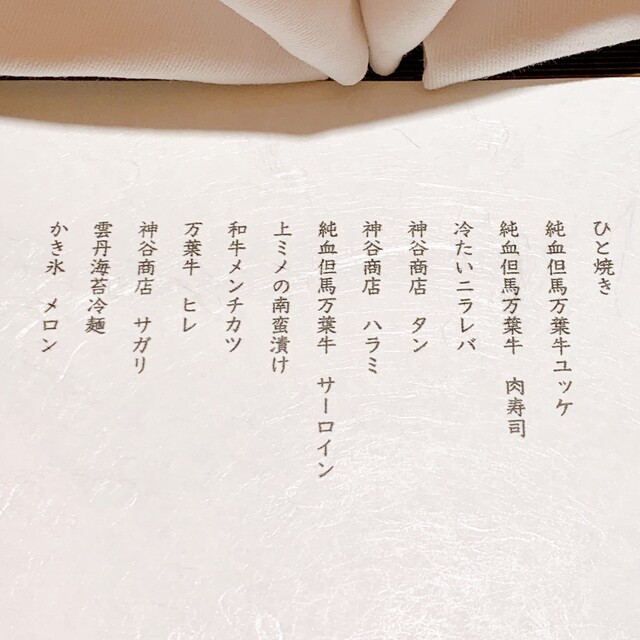 ひと焼き
純血但馬万葉牛ユッケ
純血但馬万葉牛　肉寿司
冷たいニラレバ
神谷商店　タン
神谷商店　ハラミ
純血但馬万葉牛　サーロイン
上ミノの南蛮漬け
和牛メンチカツ
万葉牛　ヒレ
神谷商店　サガリ
雲丹海苔冷麺
かき氷　メロン